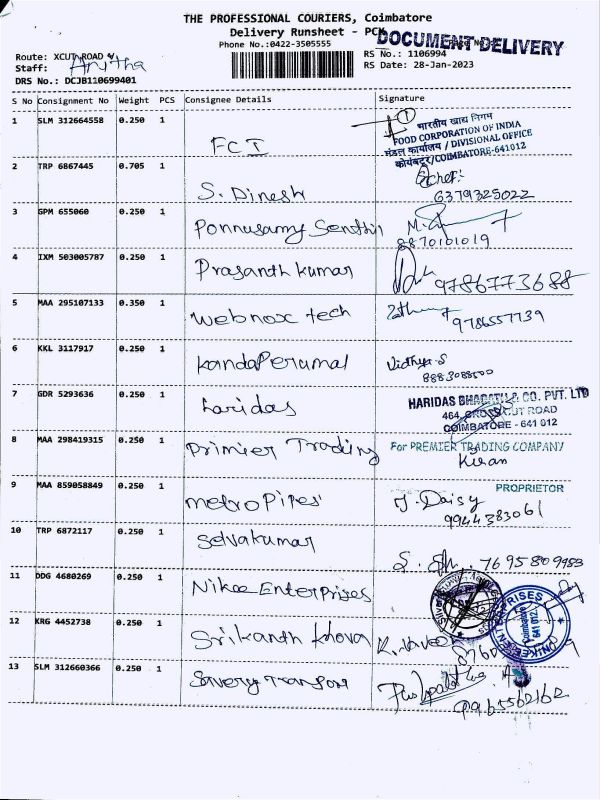 THE PROFESSIONAL COURIERS, Coimbatore
Delivery Runsheet - PCK
DOCUMENT DELIVERY
Phone No.:0422-3505555
Route: XCUT ROAD 4
RS No.: 1106994
Staff: Anitha
RS Date: 28-Jan-2023
DRS No.: DCJB110699401
S No Consignment No Weight PCS Consignee Details Signature
1 SLM 312664558 0.250 1 FCI
1
भारतीय खाद्य निगम
FOOD CORPORATION OF INDIA
मंडल कार्यालय / DIVISIONAL OFFICE
कोयंबटूर/COIMBATORE-641012
2 TRP 6867445 0.705 1 S. Dinesh
6379325022
3 GPM 655060 0.250 1 Ponnusamy Senthil
8870101019
4 IXM 503005787 0.250 1 Prasanth kumar
9786773688
5 MAA 295107133 0.350 1 webnox tech
9786557739
6 KKL 3117917 0.250 1 kandaPerumal
Vidhya.S
8883088500
7 GDR 5293636 0.250 1 haridas
HARIDAS BHAGATH & CO. PVT. LTD
464, CROSS CUT ROAD
COIMBATORE - 641 012
8 MAA 298419315 0.250 1 Primier Trading
For PREMIER TRADING COMPANY
Kiran
PROPRIETOR
9 MAA 859058849 0.250 1 metro Pipes
J. Daisy
9944383061
10 TRP 6872117 0.250 1 Selvakumar
7695809983
11 DDG 4680269 0.250 1 Nikee Enterprises
12 KRG 4452738 0.250 1 Srikanth khova
K. Naveen
Coimbatore
641 012
13 SLM 312660366 0.250 1 Savery Transport
9965562162